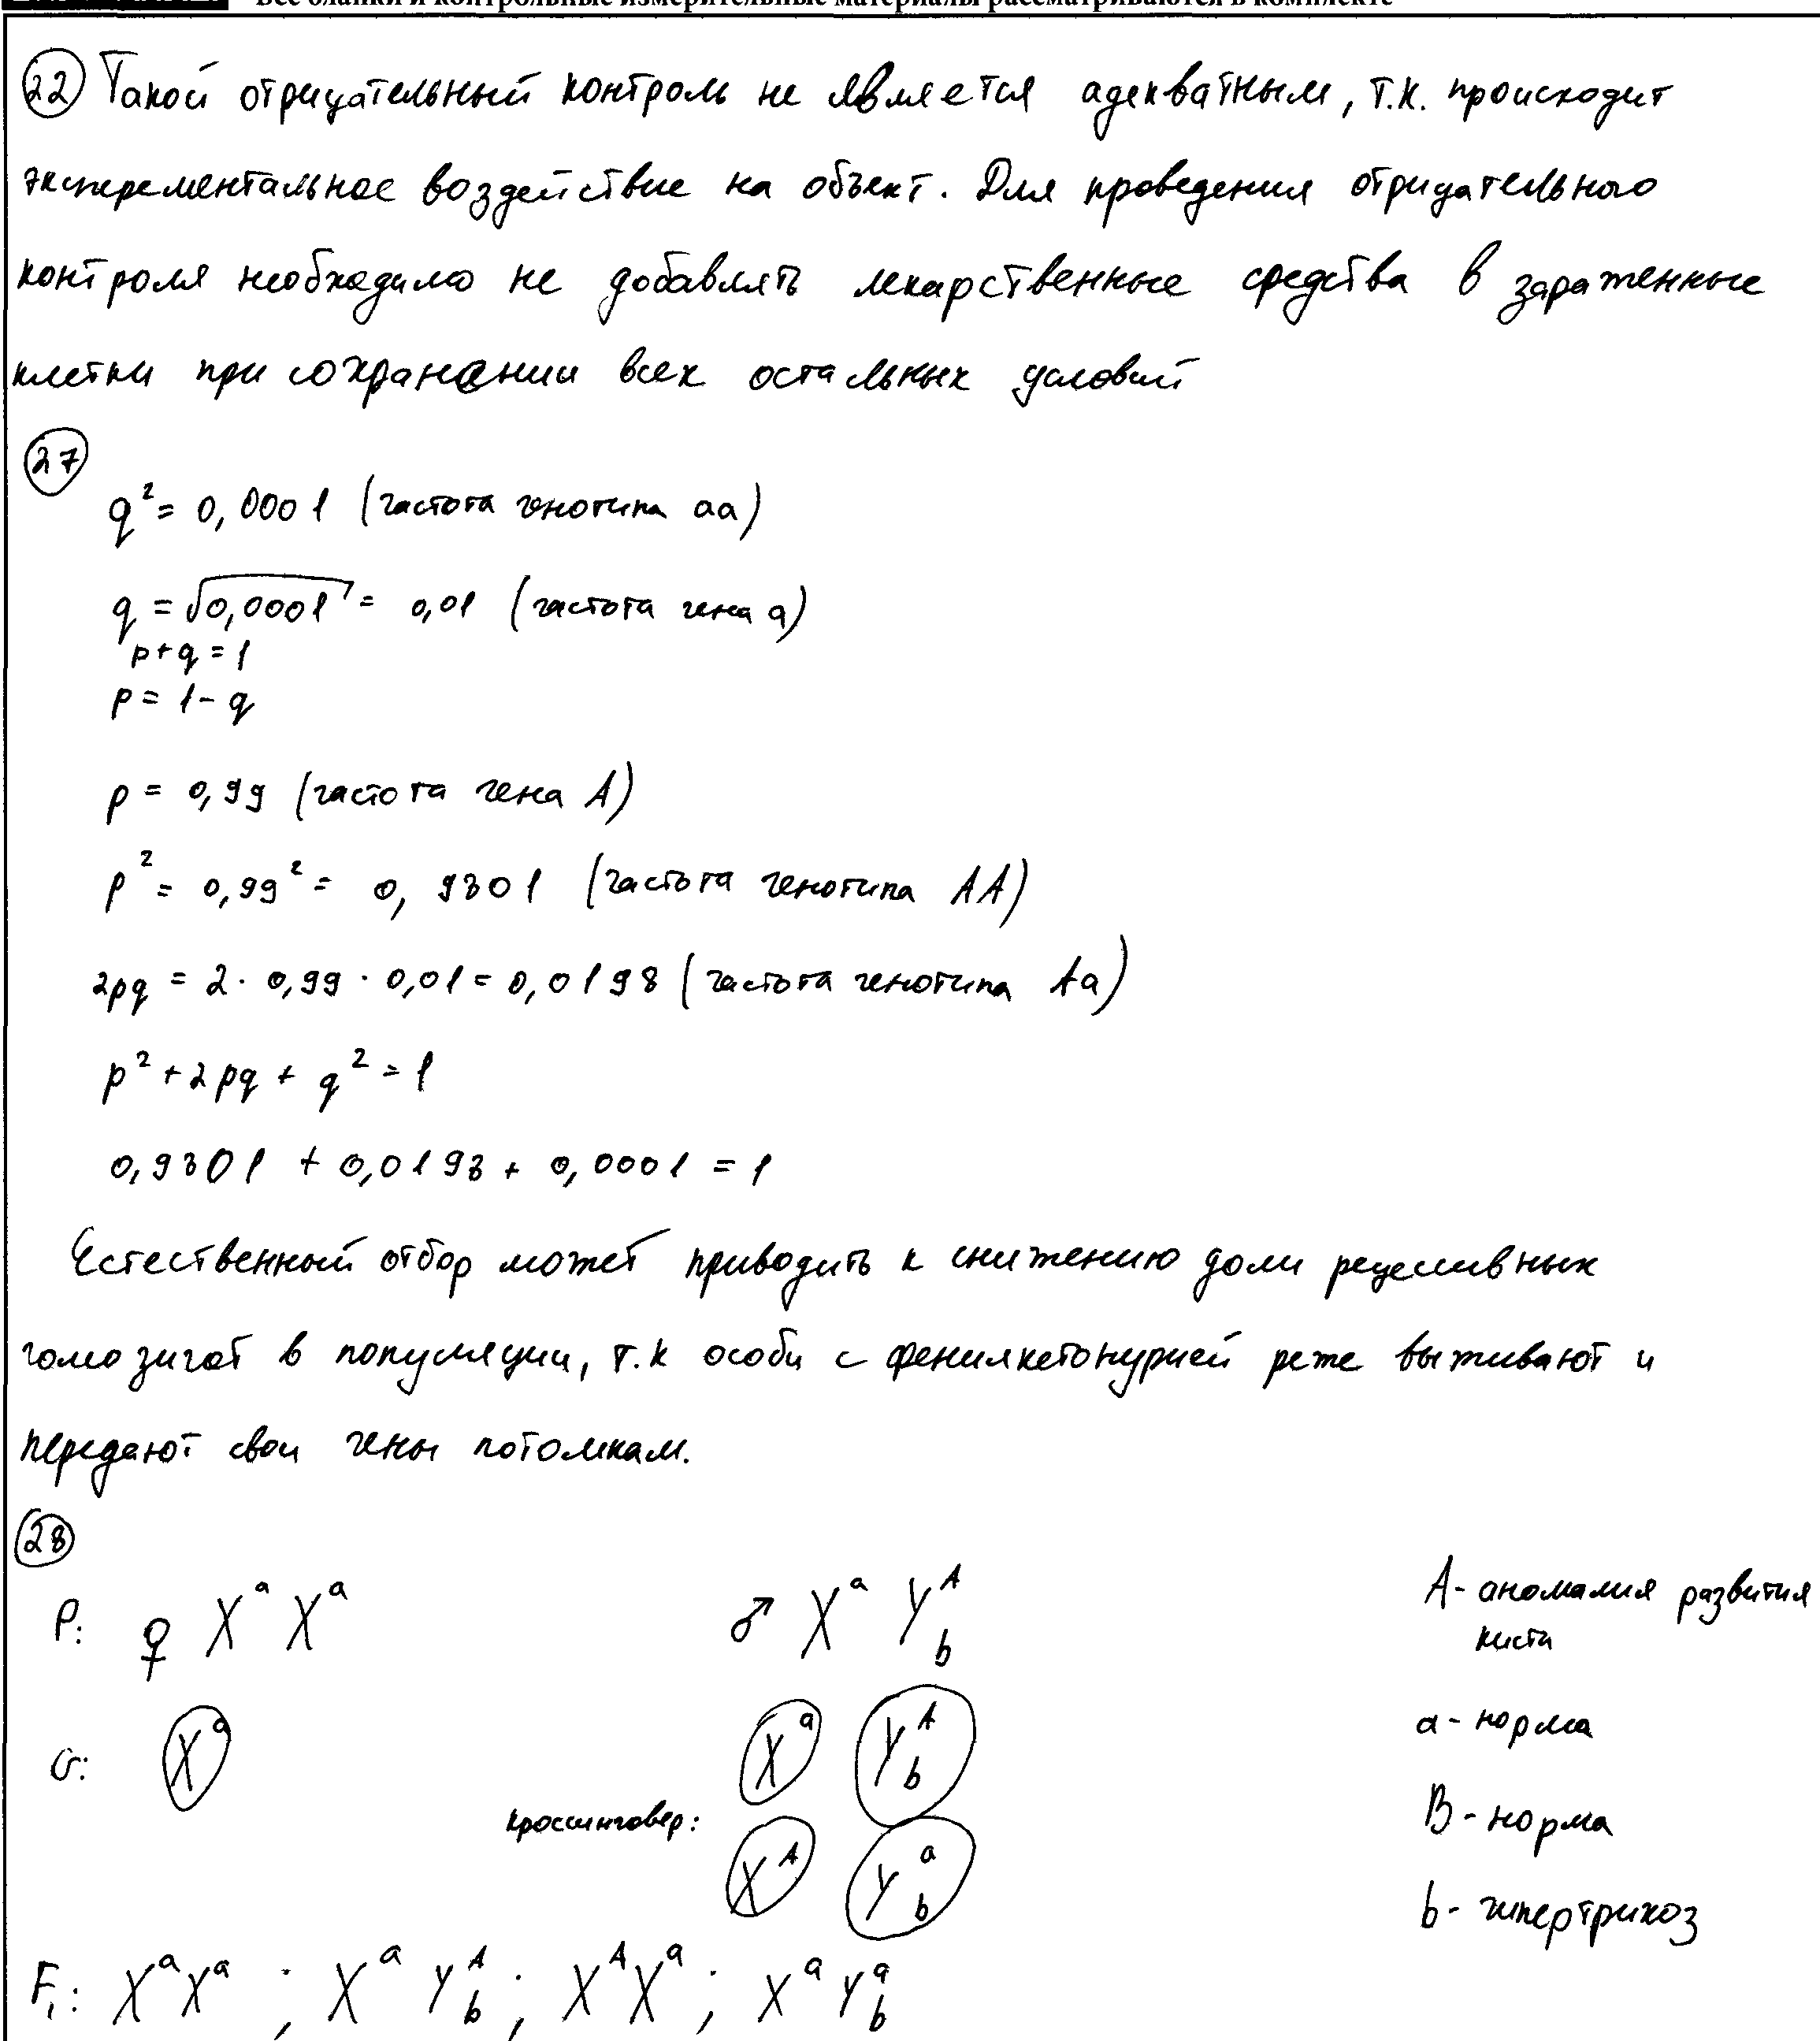 Все бланки и контрольные измерительные материалы рассматриваются в комплекте
22 Такой отрицательный контроль не является адекватным, т.к. происходит
эксперементальное воздействие на объект. Для проведения отрицательного
контроля необходимо не добавлять лекарственные средства в зараженные
клетки при сохранении всех остальных условий
27
q² = 0,0001 (частота генотипа aa)
q = √0,0001 = 0,01 (частота гена a)
p+q = 1
p = 1 - q
p = 0,99 (частота гена A)
p² = 0,99² = 0,9801 (частота генотипа AA)
2pq = 2 · 0,99 · 0,01 = 0,0198 (частота генотипа Aa)
p² + 2pq + q² = 1
0,9801 + 0,0198 + 0,0001 = 1
Естественный отбор может приводить к снижению доли рецессивных
гомозигот в популяции, т.к особи с фенилкетонурией реже выживают и
передают свои гены потомкам.
28
P: ♀ XᵃXᵃ ♂ Xᵃ Yᴬb A - аномалия развития
кисти
G: Xᵃ Xᵃ Yᴬb a - норма
кроссинговер: Xᴬ Yᵃb B - норма
b - гипертрихоз
F₁: XᵃXᵃ ; Xᵃ Yᴬb ; XᴬXᵃ ; Xᵃ Yᵃb